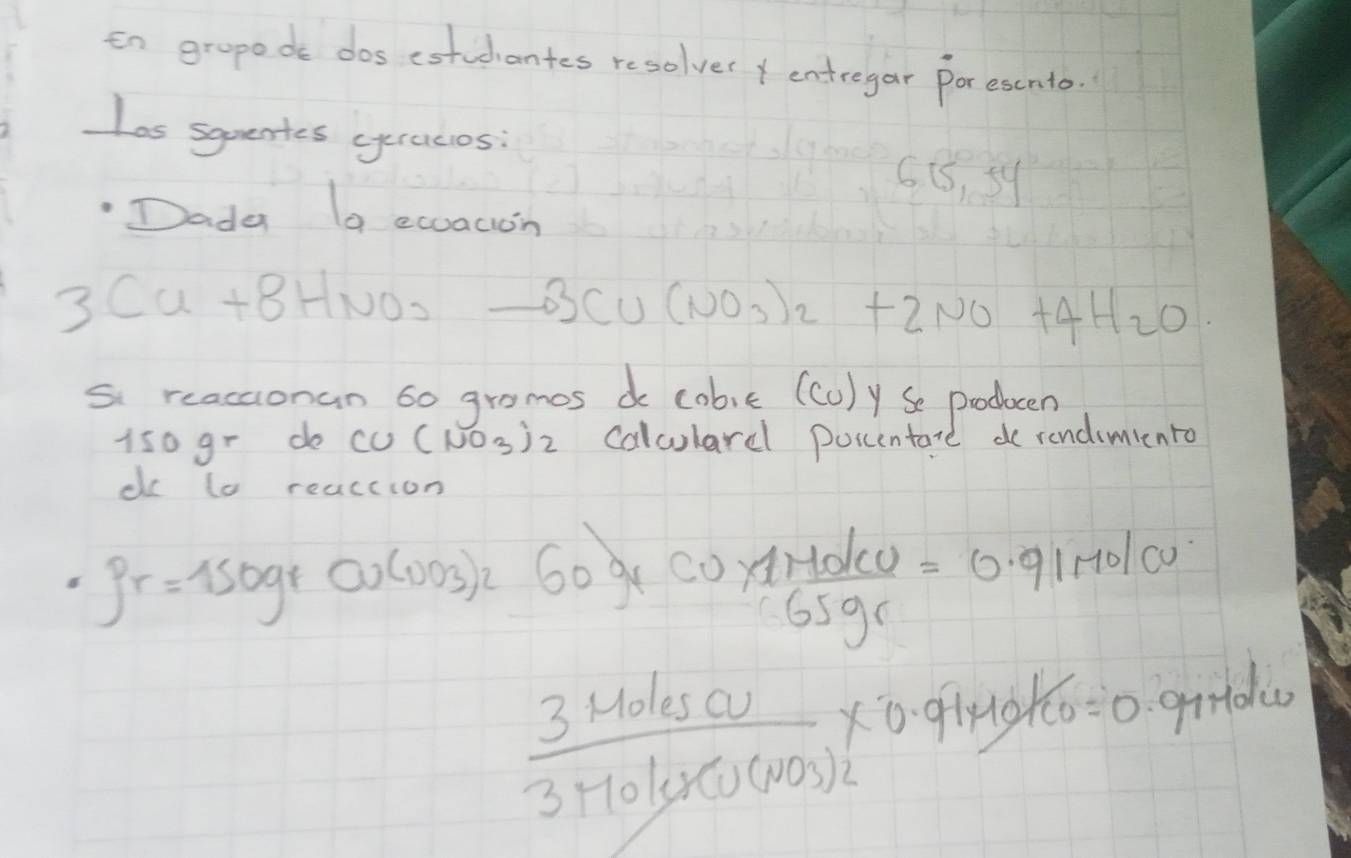 En grupo de dos estudiantes resolver y entregar por escrito.
Los siguientes ejercicios:
615,54
• Dada la ecuación
3Cu + 8HNO3 → 3Cu(NO3)2 + 2NO + 4H2O.
Si reaccionan 60 gramos de cobre (Cu) y se producen
150 gr de Cu(NO3)2 calcular el porcentaje de rendimiento
de la reaccion
• Pr = 150gr Cu(NO3)2 60 gr Cu x 1 Mol Cu = 0.91 Mol Cu
65gr
3 Moles Cu x 0.91 Mol Cu = 0.91 Mol Cu
3 Moles Cu(NO3)2